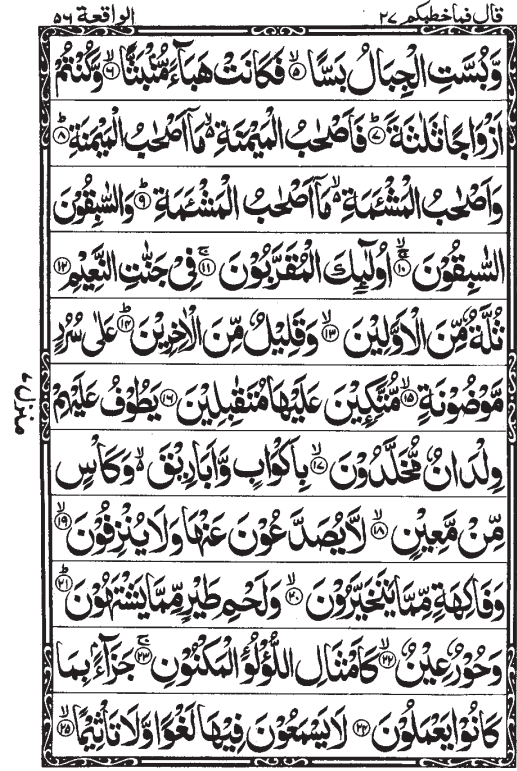 قال فما خطبكم ۲۷
الواقعة ۵۶
وَّبُسَّتِ الْجِبَالُ بَسًّا ۙ﴿۵﴾ فَكَانَتْ هَبَآءً مُّنْۢبَثًّا ۙ﴿۶﴾ وَّكُنْتُمْ
اَزْوَاجًا ثَلٰثَةً ؕ﴿۷﴾ فَاَصْحٰبُ الْمَيْمَنَةِ ۙ۬ مَاۤ اَصْحٰبُ الْمَيْمَنَةِ ؕ﴿۸﴾
وَاَصْحٰبُ الْمَشْـَٔمَةِ ۙ۬ مَاۤ اَصْحٰبُ الْمَشْـَٔمَةِ ؕ﴿۹﴾ وَالسّٰبِقُوْنَ
السّٰبِقُوْنَ ۚۙ﴿۱۰﴾ اُولٰٓئِكَ الْمُقَرَّبُوْنَ ۚ﴿۱۱﴾ فِيْ جَنّٰتِ النَّعِيْمِ ﴿۱۲﴾
ثُلَّةٌ مِّنَ الْاَوَّلِيْنَ ۙ﴿۱۳﴾ وَقَلِيْلٌ مِّنَ الْاٰخِرِيْنَ ؕ﴿۱۴﴾ عَلٰى سُرُرٍ
مَّوْضُوْنَةٍ ۙ﴿۱۵﴾ مُّتَّكِـِٕيْنَ عَلَيْهَا مُتَقٰبِلِيْنَ ﴿۱۶﴾ يَطُوْفُ عَلَيْهِمْ
وِلْدَانٌ مُّخَلَّدُوْنَ ۙ﴿۱۷﴾ بِاَكْوَابٍ وَّاَبَارِيْقَ ۙ۬ وَكَاْسٍ
مِّنْ مَّعِيْنٍ ۙ﴿۱۸﴾ لَّا يُصَدَّعُوْنَ عَنْهَا وَلَا يُنْزِفُوْنَ ۙ﴿۱۹﴾
وَفَاكِهَةٍ مِّمَّا يَتَخَيَّرُوْنَ ۙ﴿۲۰﴾ وَلَحْمِ طَيْرٍ مِّمَّا يَشْتَهُوْنَ ؕ﴿۲۱﴾
وَحُوْرٌ عِيْنٌ ۙ﴿۲۲﴾ كَاَمْثَالِ اللُّؤْلُؤِ الْمَكْنُوْنِ ۚ﴿۲۳﴾ جَزَآءًۢ بِمَا
كَانُوْا يَعْمَلُوْنَ ﴿۲۴﴾ لَا يَسْمَعُوْنَ فِيْهَا لَغْوًا وَّلَا تَاْثِيْمًا ۙ﴿۲۵﴾
منزل ۷